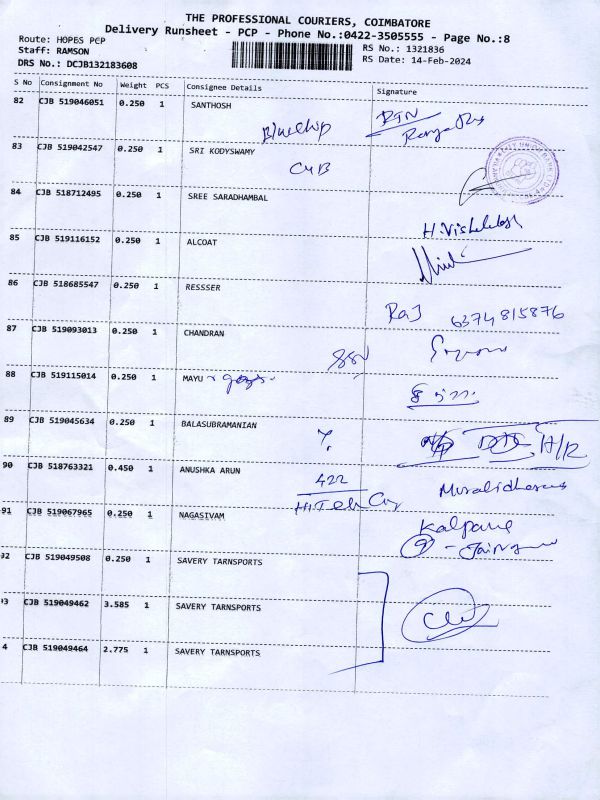 THE PROFESSIONAL COURIERS, COIMBATORE
Delivery Runsheet - PCP - Phone No.:0422-3505555 - Page No.:8
Route: HOPES PCP
RS No.: 1321836
Staff: RAMSON
RS Date: 14-Feb-2024
DRS No.: DCJB132183608
S No Consignment No Weight PCS Consignee Details Signature
82 CJB 519046051 0.250 1 SANTHOSH
83 CJB 519042547 0.250 1 SRI KODYSWAMY
CUB
84 CJB 518712495 0.250 1 SREE SARADHAMBAL
85 CJB 519116152 0.250 1 ALCOAT
86 CJB 518685547 0.250 1 RESSSER
Raj 6374815876
87 CJB 519093013 0.250 1 CHANDRAN
88 CJB 519115014 0.250 1 MAYU
89 CJB 519045634 0.250 1 BALASUBRAMANIAN
90 CJB 518763321 0.450 1 ANUSHKA ARUN
422
91 CJB 519067965 0.250 1 NAGASIVAM
Kalpana
92 CJB 519049508 0.250 1 SAVERY TARNSPORTS
93 CJB 519049462 3.585 1 SAVERY TARNSPORTS
4 CJB 519049464 2.775 1 SAVERY TARNSPORTS